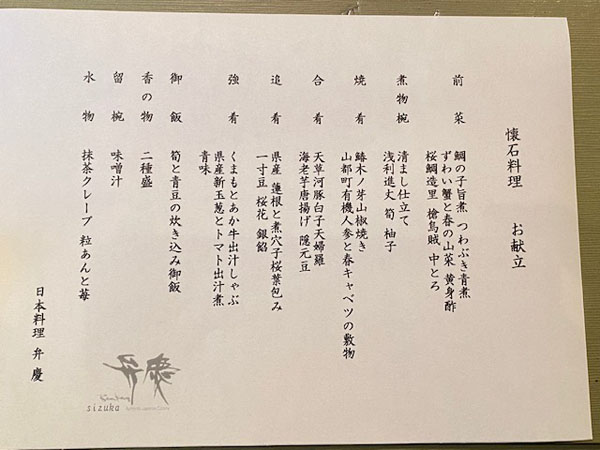 懐石料理　お献立
前菜　鯛の子旨煮 つわぶき青煮
ずわい蟹と春の山菜 黄身酢
桜鯛造里 槍烏賊 中とろ
煮物椀　清まし仕立て
浅利進丈 筍 柚子
焼肴　鰆木ノ芽山椒焼き
山都町有機人参と春キャベツの敷物
合肴　天草河豚白子天婦羅
海老芋唐揚げ 隠元豆
追肴　県産 蓮根と煮穴子桜葉包み
一寸豆 桜花 銀餡
強肴　くまもとあか牛出汁しゃぶ
県産新玉葱とトマト出汁煮
青味
御飯　筍と青豆の炊き込み御飯
香の物　二種盛
留椀　味噌汁
水物　抹茶クレープ 粒あんと苺
日本料理 弁慶
弁慶
sizuka